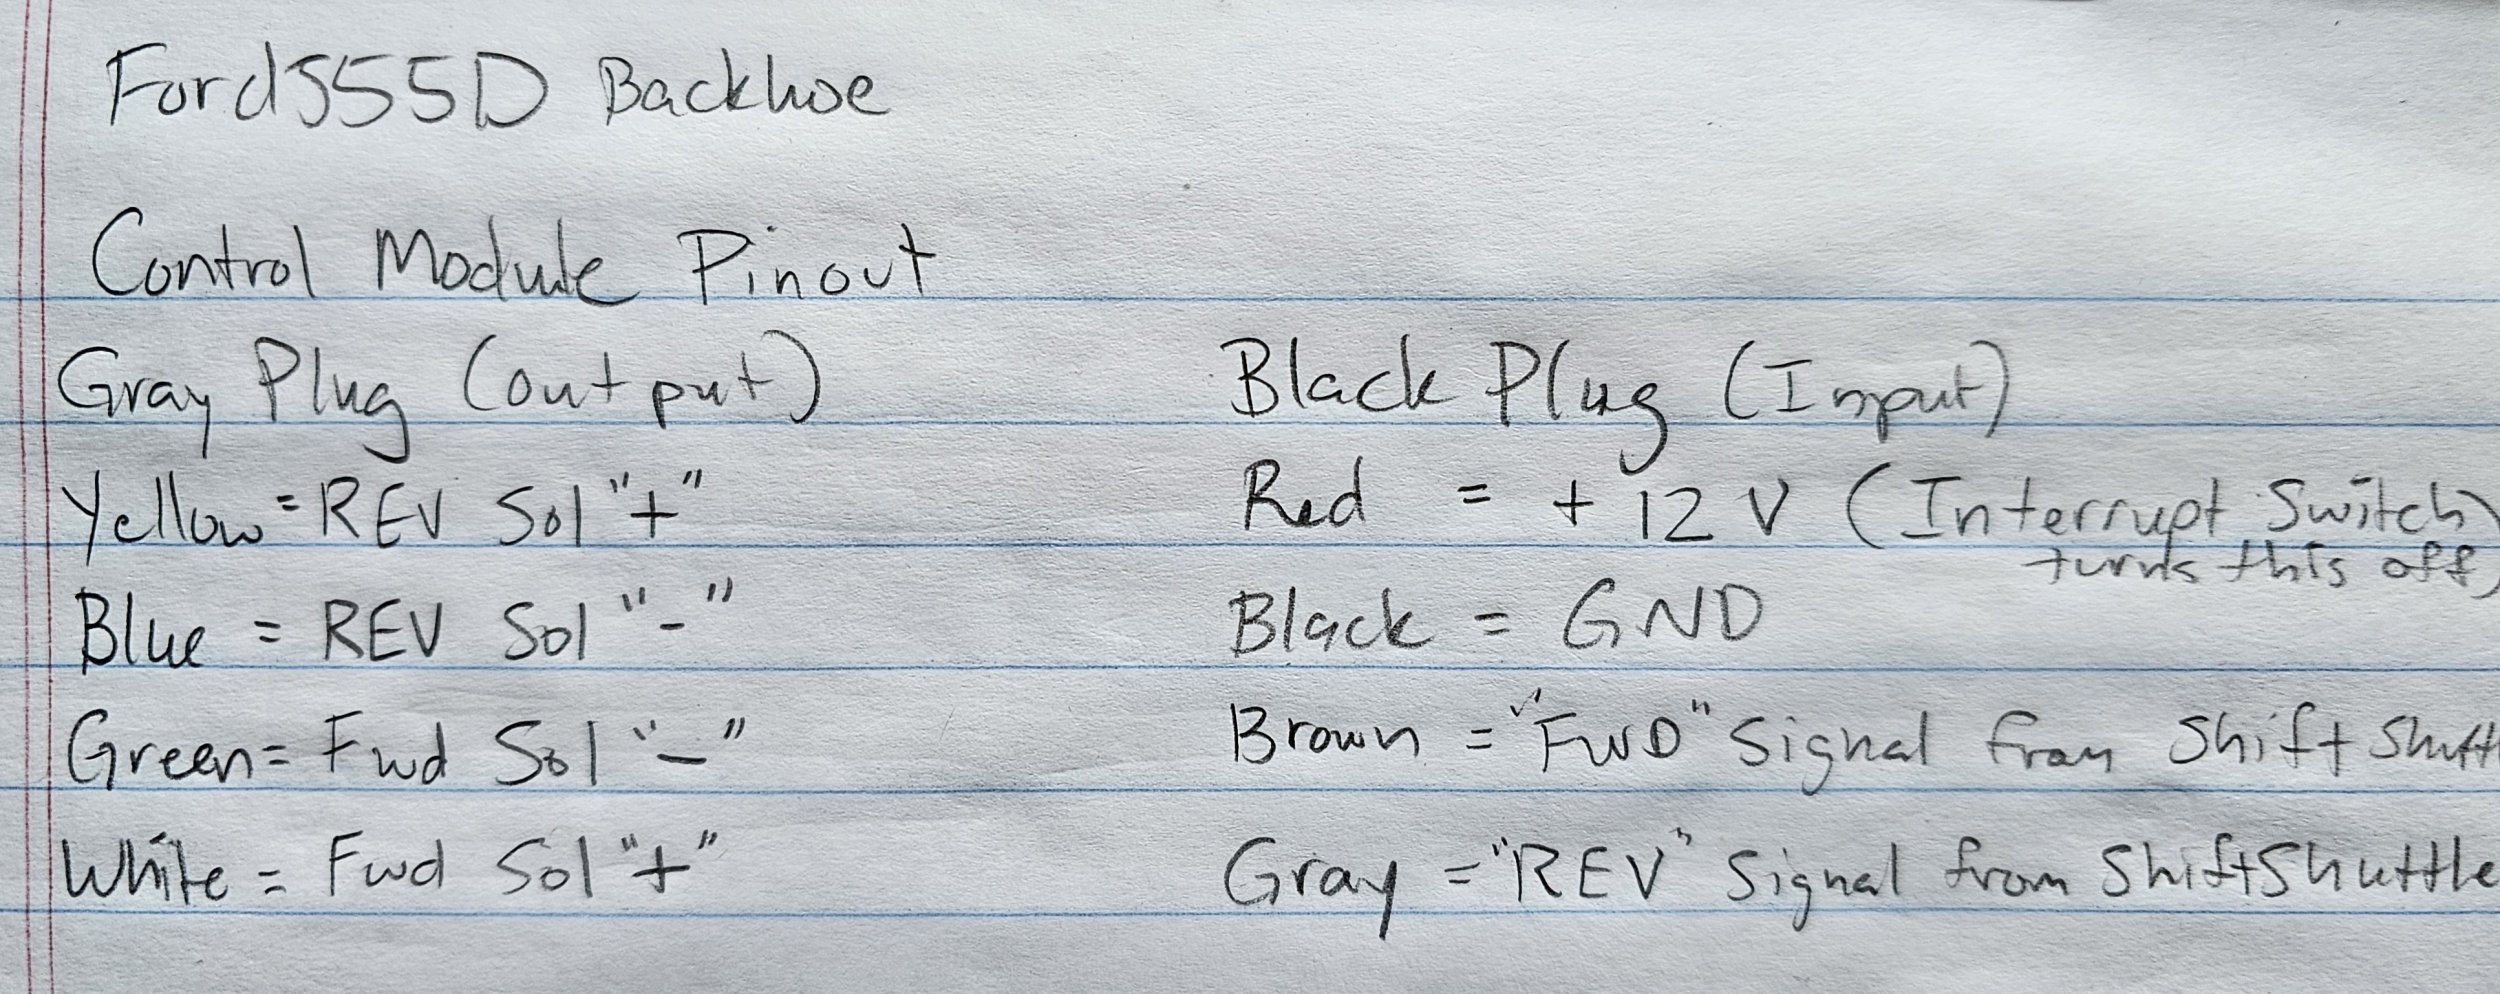 Ford 555D Backhoe
Control Module Pinout
Gray Plug (Output)
Yellow = REV Sol "+"
Blue = REV Sol "-"
Green = Fwd Sol "-"
White = Fwd Sol "+"
Black Plug (Input)
Red = + 12 V (Interrupt Switch
turns this off)
Black = GND
Brown = "FWD" Signal from Shift Shuttl
Gray = "REV" Signal from Shift Shuttle